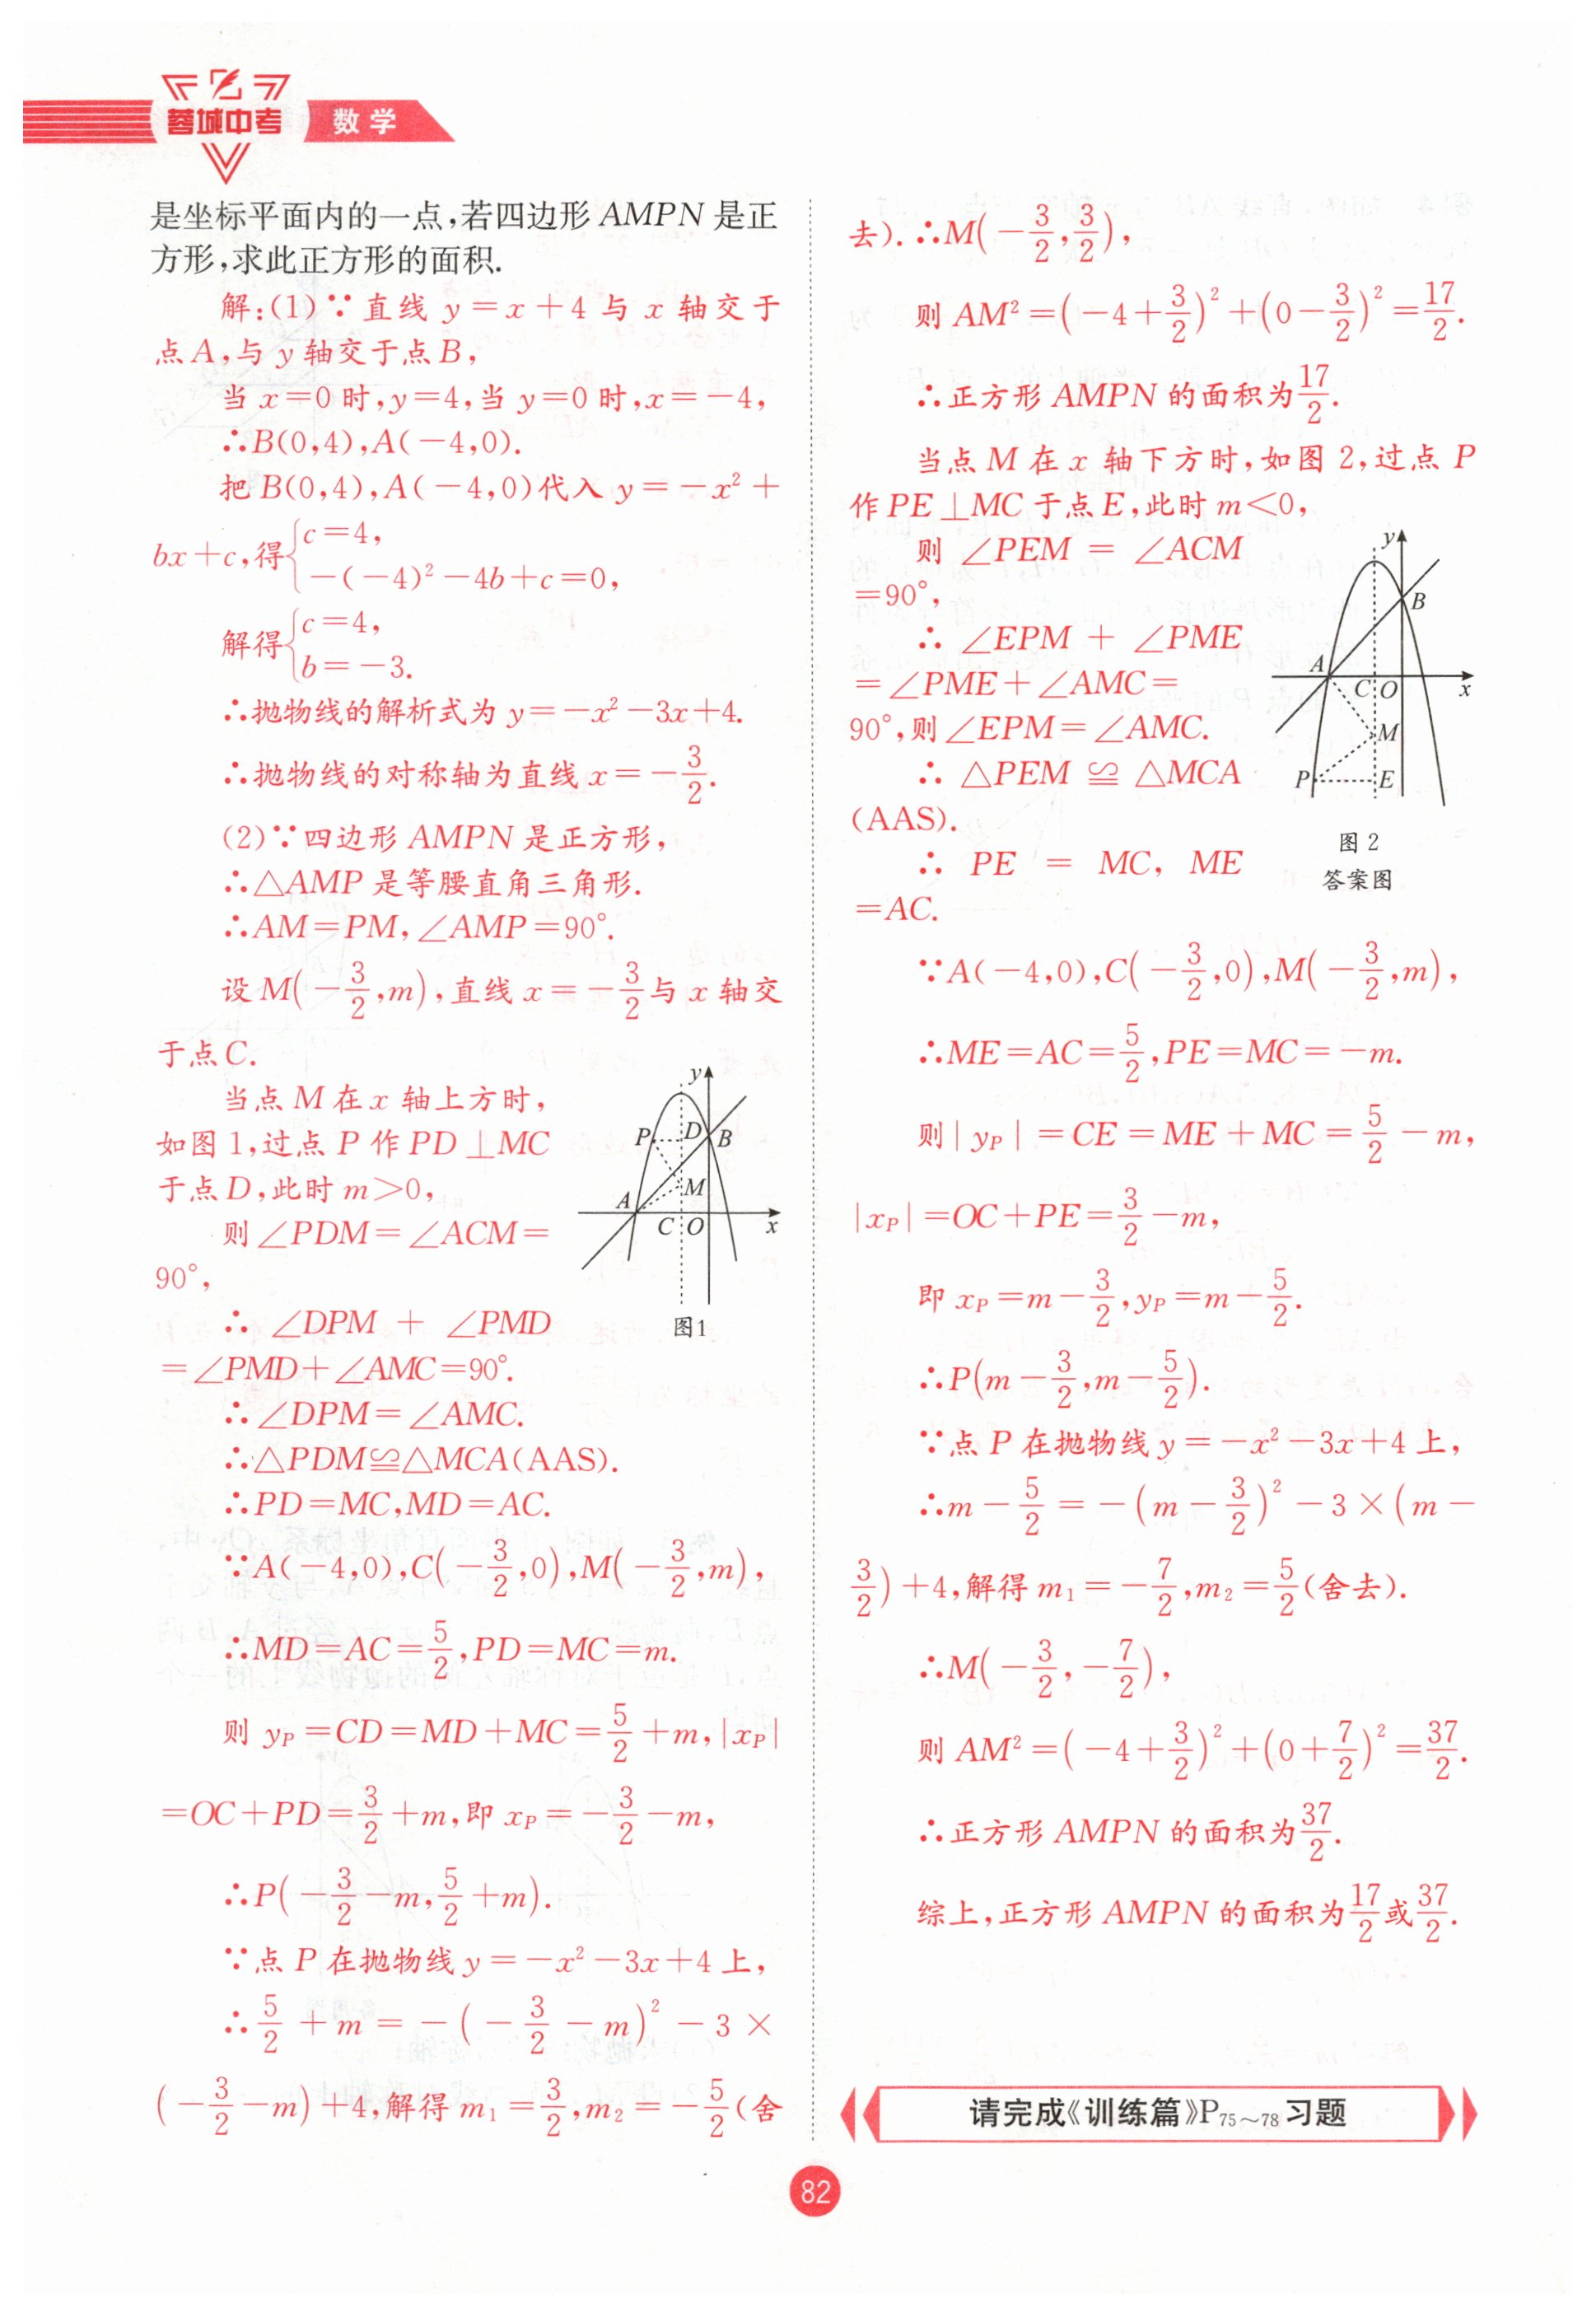 蓉城中考 数学
是坐标平面内的一点,若四边形 AMPN 是正
方形,求此正方形的面积.
解:(1)∵直线 y=x+4 与 x 轴交于
点A,与 y 轴交于点B,
当 x=0 时,y=4,当 y=0 时,x=-4,
∴B(0,4),A(-4,0).
把B(0,4),A(-4,0)代入 y=-x²+
bx+c,得{c=4, -(-4)²-4b+c=0,
解得{c=4, b=-3.
∴抛物线的解析式为 y=-x²-3x+4.
∴抛物线的对称轴为直线 x=-3/2.
(2)∵四边形 AMPN 是正方形,
∴△AMP 是等腰直角三角形.
∴AM=PM,∠AMP=90°.
设M(-3/2,m),直线 x=-3/2与 x 轴交
于点C.
当点 M 在 x 轴上方时,
如图 1,过点 P 作 PD⊥MC
于点D,此时 m>0,
则∠PDM=∠ACM=
90°,
∴∠DPM+∠PMD
=∠PMD+∠AMC=90°.
∴∠DPM=∠AMC.
∴△PDM≌△MCA(AAS).
∴PD=MC,MD=AC.
∵A(-4,0),C(-3/2,0),M(-3/2,m),
∴MD=AC=5/2,PD=MC=m.
则 yP=CD=MD+MC=5/2+m,|xP|
=OC+PD=3/2+m,即 xP=-3/2-m,
∴P(-3/2-m,5/2+m).
∵点 P 在抛物线 y=-x²-3x+4 上,
∴5/2+m=-(-3/2-m)²-3×
(-3/2-m)+4,解得 m₁=3/2,m₂=-5/2(舍
y
P D B
M
A
C O x
图1
去).∴M(-3/2,3/2),
则 AM²=(-4+3/2)²+(0-3/2)²=17/2.
∴正方形 AMPN 的面积为17/2.
当点 M 在 x 轴下方时,如图 2,过点 P
作PE⊥MC 于点E,此时 m<0,
则∠PEM=∠ACM
=90°,
∴∠EPM+∠PME
=∠PME+∠AMC=
90°,则∠EPM=∠AMC.
∴△PEM≌△MCA
(AAS).
∴PE=MC,ME
=AC.
y
B
A
C O x
M
P E
图 2
答案图
∵A(-4,0),C(-3/2,0),M(-3/2,m),
∴ME=AC=5/2,PE=MC=-m.
则|yP|=CE=ME+MC=5/2-m,
|xP|=OC+PE=3/2-m,
即 xP=m-3/2,yP=m-5/2.
∴P(m-3/2,m-5/2).
∵点 P 在抛物线 y=-x²-3x+4 上,
∴m-5/2=-(m-3/2)²-3×(m-
3/2)+4,解得 m₁=-7/2,m₂=5/2(舍去).
∴M(-3/2,-7/2),
则 AM²=(-4+3/2)²+(0+7/2)²=37/2.
∴正方形 AMPN 的面积为37/2.
综上,正方形 AMPN 的面积为17/2或37/2.
请完成《训练篇》P75~78习题
82